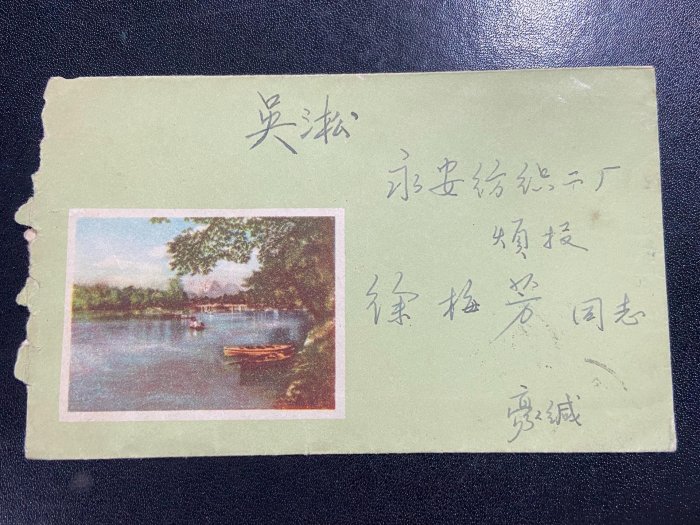 吳淞
永安纺织二厂
烦投
徐梅芳同志
豪缄